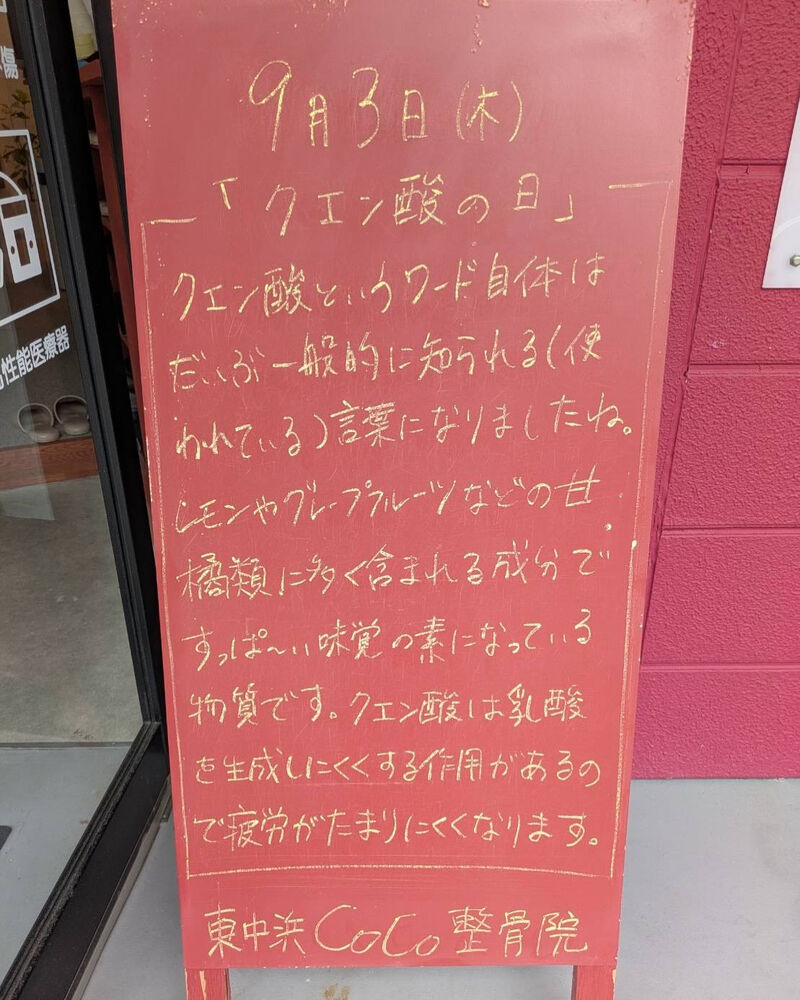 9月3日(木)
「クエン酸の日」
クエン酸というワード自体は
だいぶ一般的に知られる(使
われている)言葉になりましたね。
レモンやグレープフルーツなどの甘
橘類に多く含まれる成分で
すっぱ〜い味覚の素になっている
物質です。クエン酸は乳酸
を生成しにくくする作用があるの
で疲労がたまりにくくなります。
東中浜CoCo整骨院
傷
性能医療器